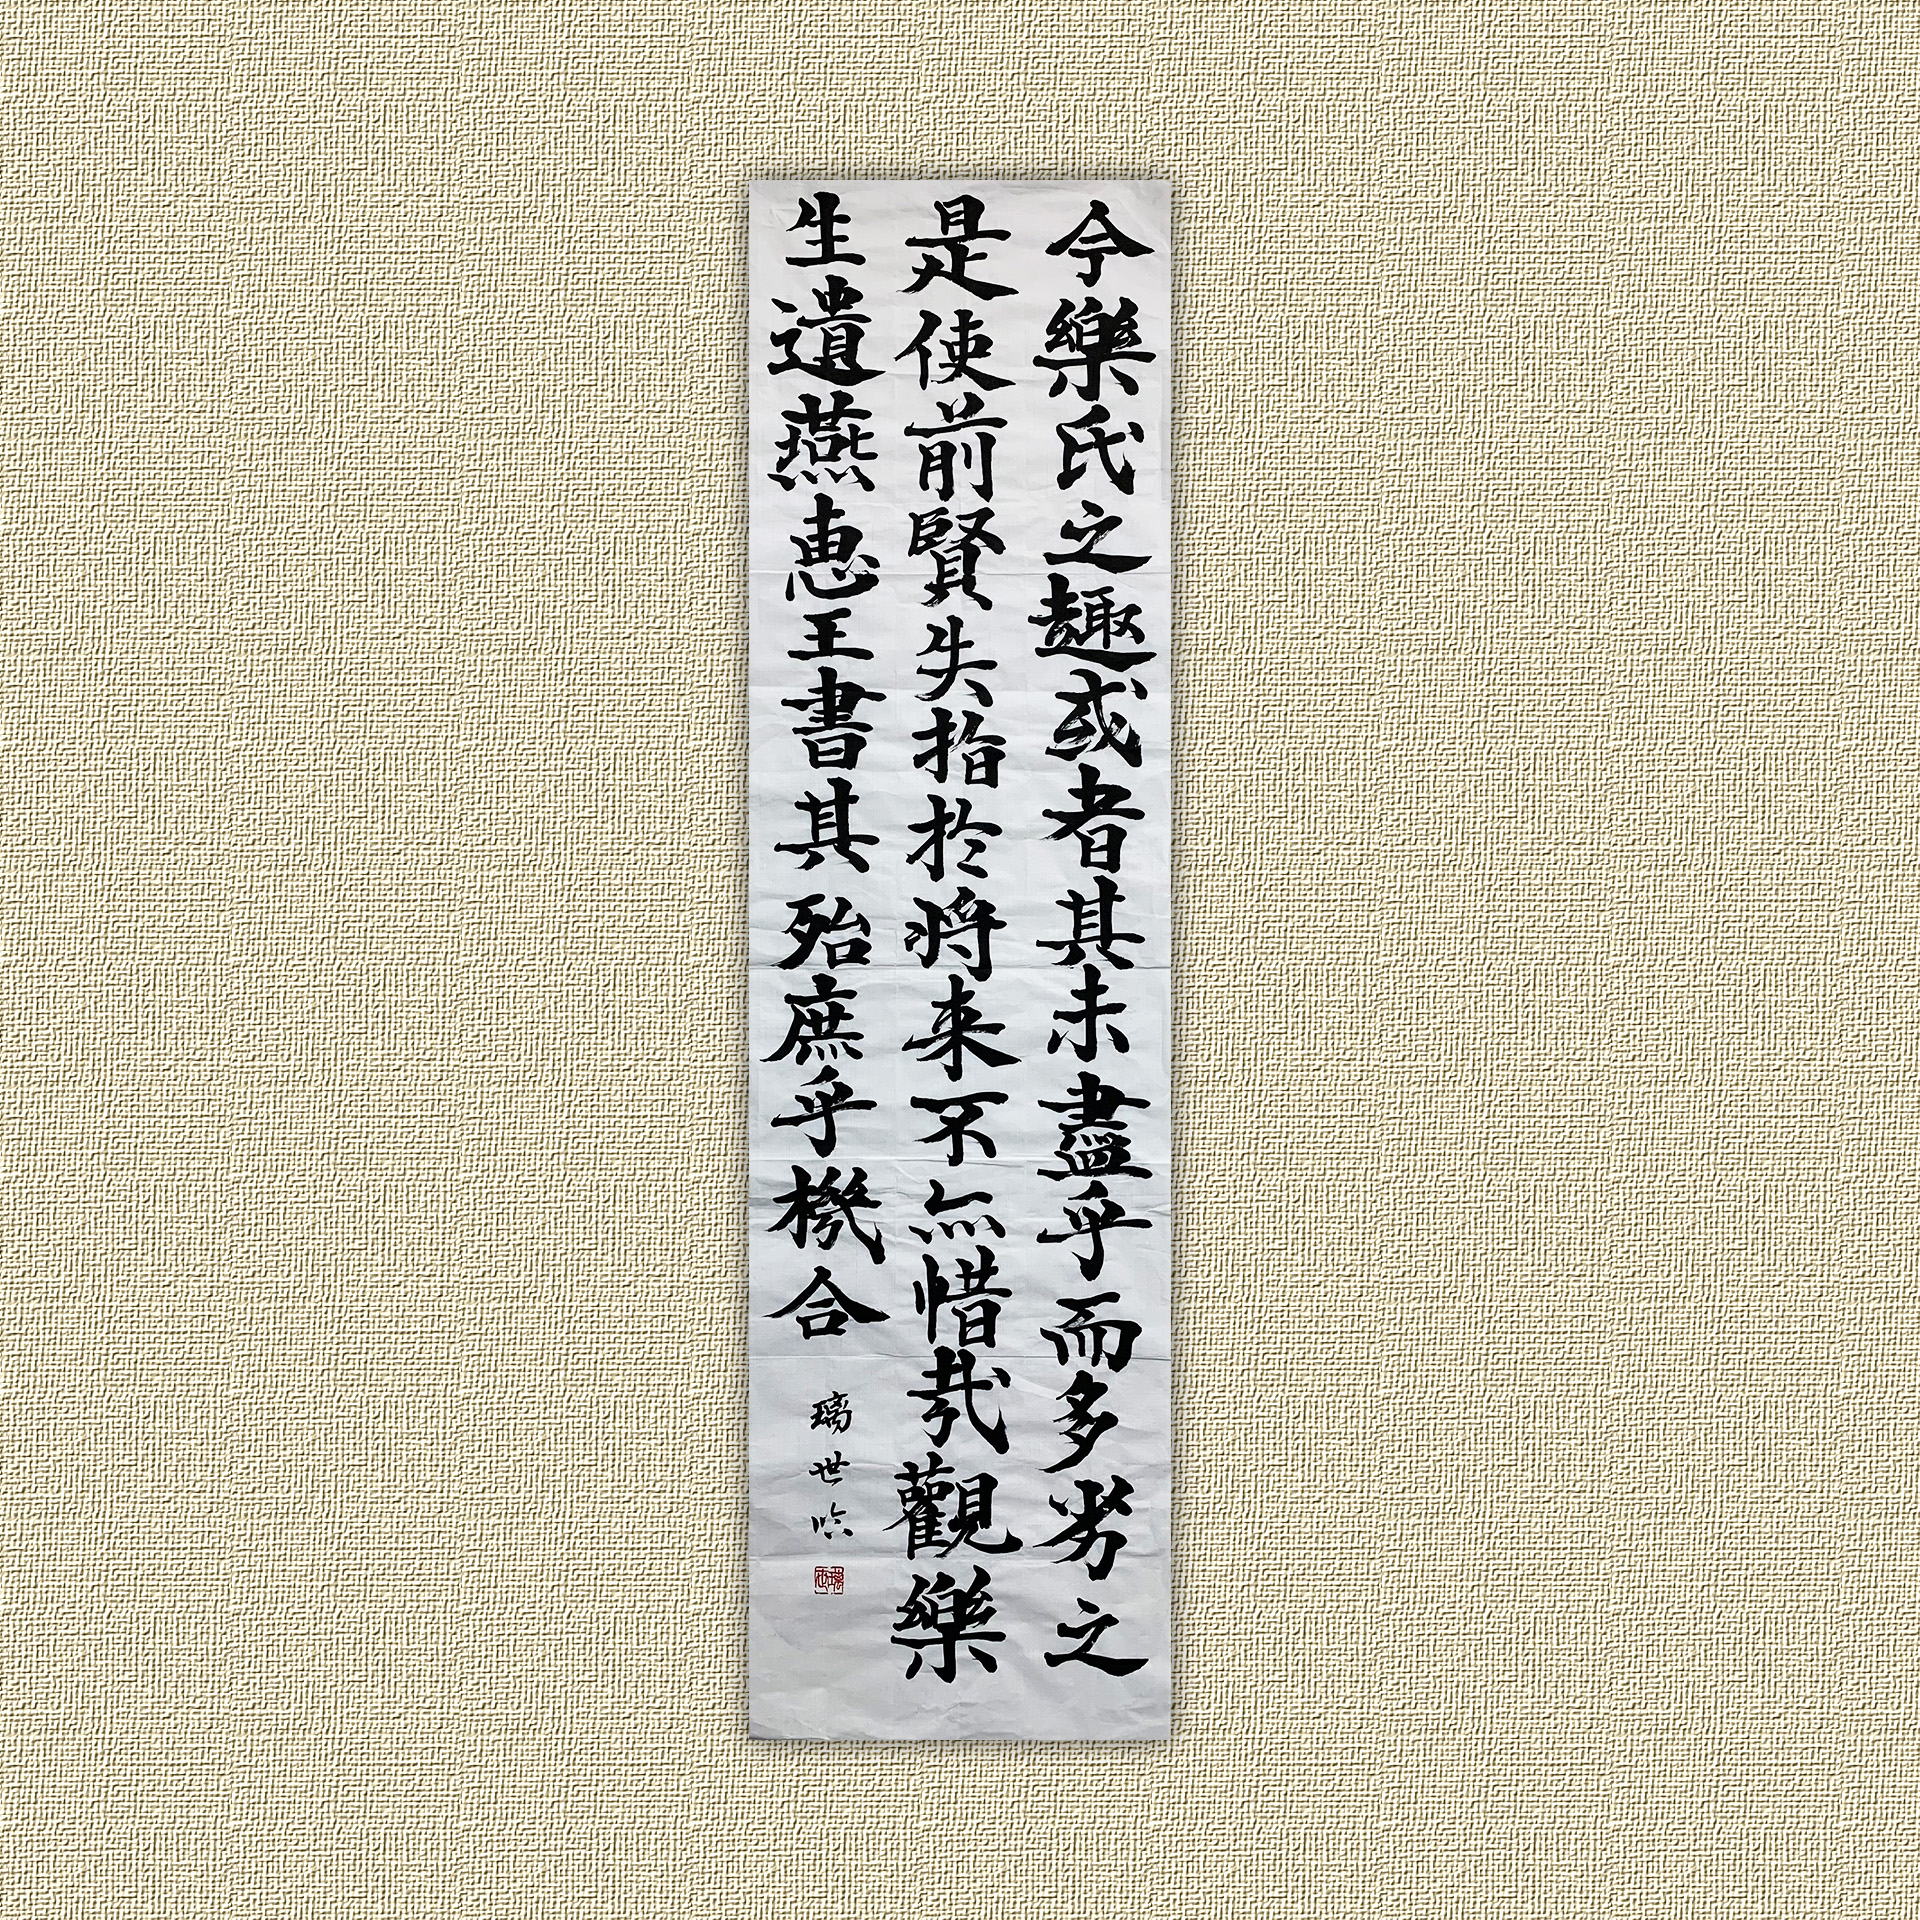 今樂氏之趣或者其未盡乎而多劣之
是使前賢失指扵将来不亦惜哉觀樂
生遺燕恵王書其殆庶乎機合
璃世臨